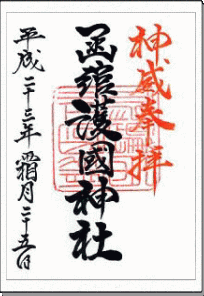 神威奉拝
函館護國神社
平成二十三年霜月二十五日